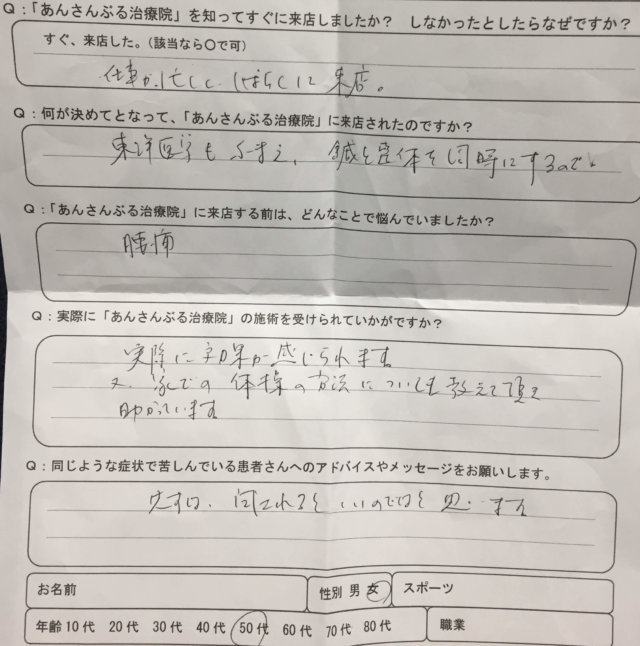 Q：「あんさんぶる治療院」を知ってすぐに来店しましたか？ しなかったとしたらなぜですか？
すぐ、来店した。（該当なら○で可）
仕事が忙しく、しばらくに来店。
Q：何が決めてとなって、「あんさんぶる治療院」に来店されたのですか？
東洋医学もふまえ、鍼と整体を同時にするので、
Q：「あんさんぶる治療院」に来店する前は、どんなことで悩んでいましたか？
腰痛
Q：実際に「あんさんぶる治療院」の施術を受けられていかがですか？
実際に効果が感じられます
又、家での体操の方法についても教えて頂き
助かっています
Q：同じような症状で苦しんでいる患者さんへのアドバイスやメッセージをお願いします。
先ずは、問われるといいのではと思います
お名前 性別 男 女 スポーツ
年齢 10代 20代 30代 40代 50代 60代 70代 80代 職業